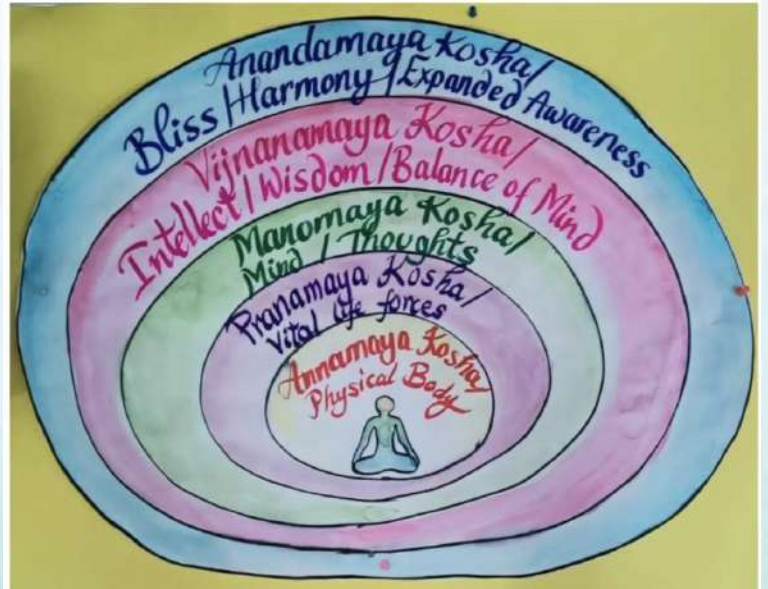 Anandamaya Kosha/
Bliss/Harmony/Expanded Awareness
Vijnanamaya Kosha/
Intellect/Wisdom/Balance of Mind
Manomaya Kosha/
Mind/Thoughts
Pranamaya Kosha/
Vital life forces
Annamaya Kosha/
Physical Body